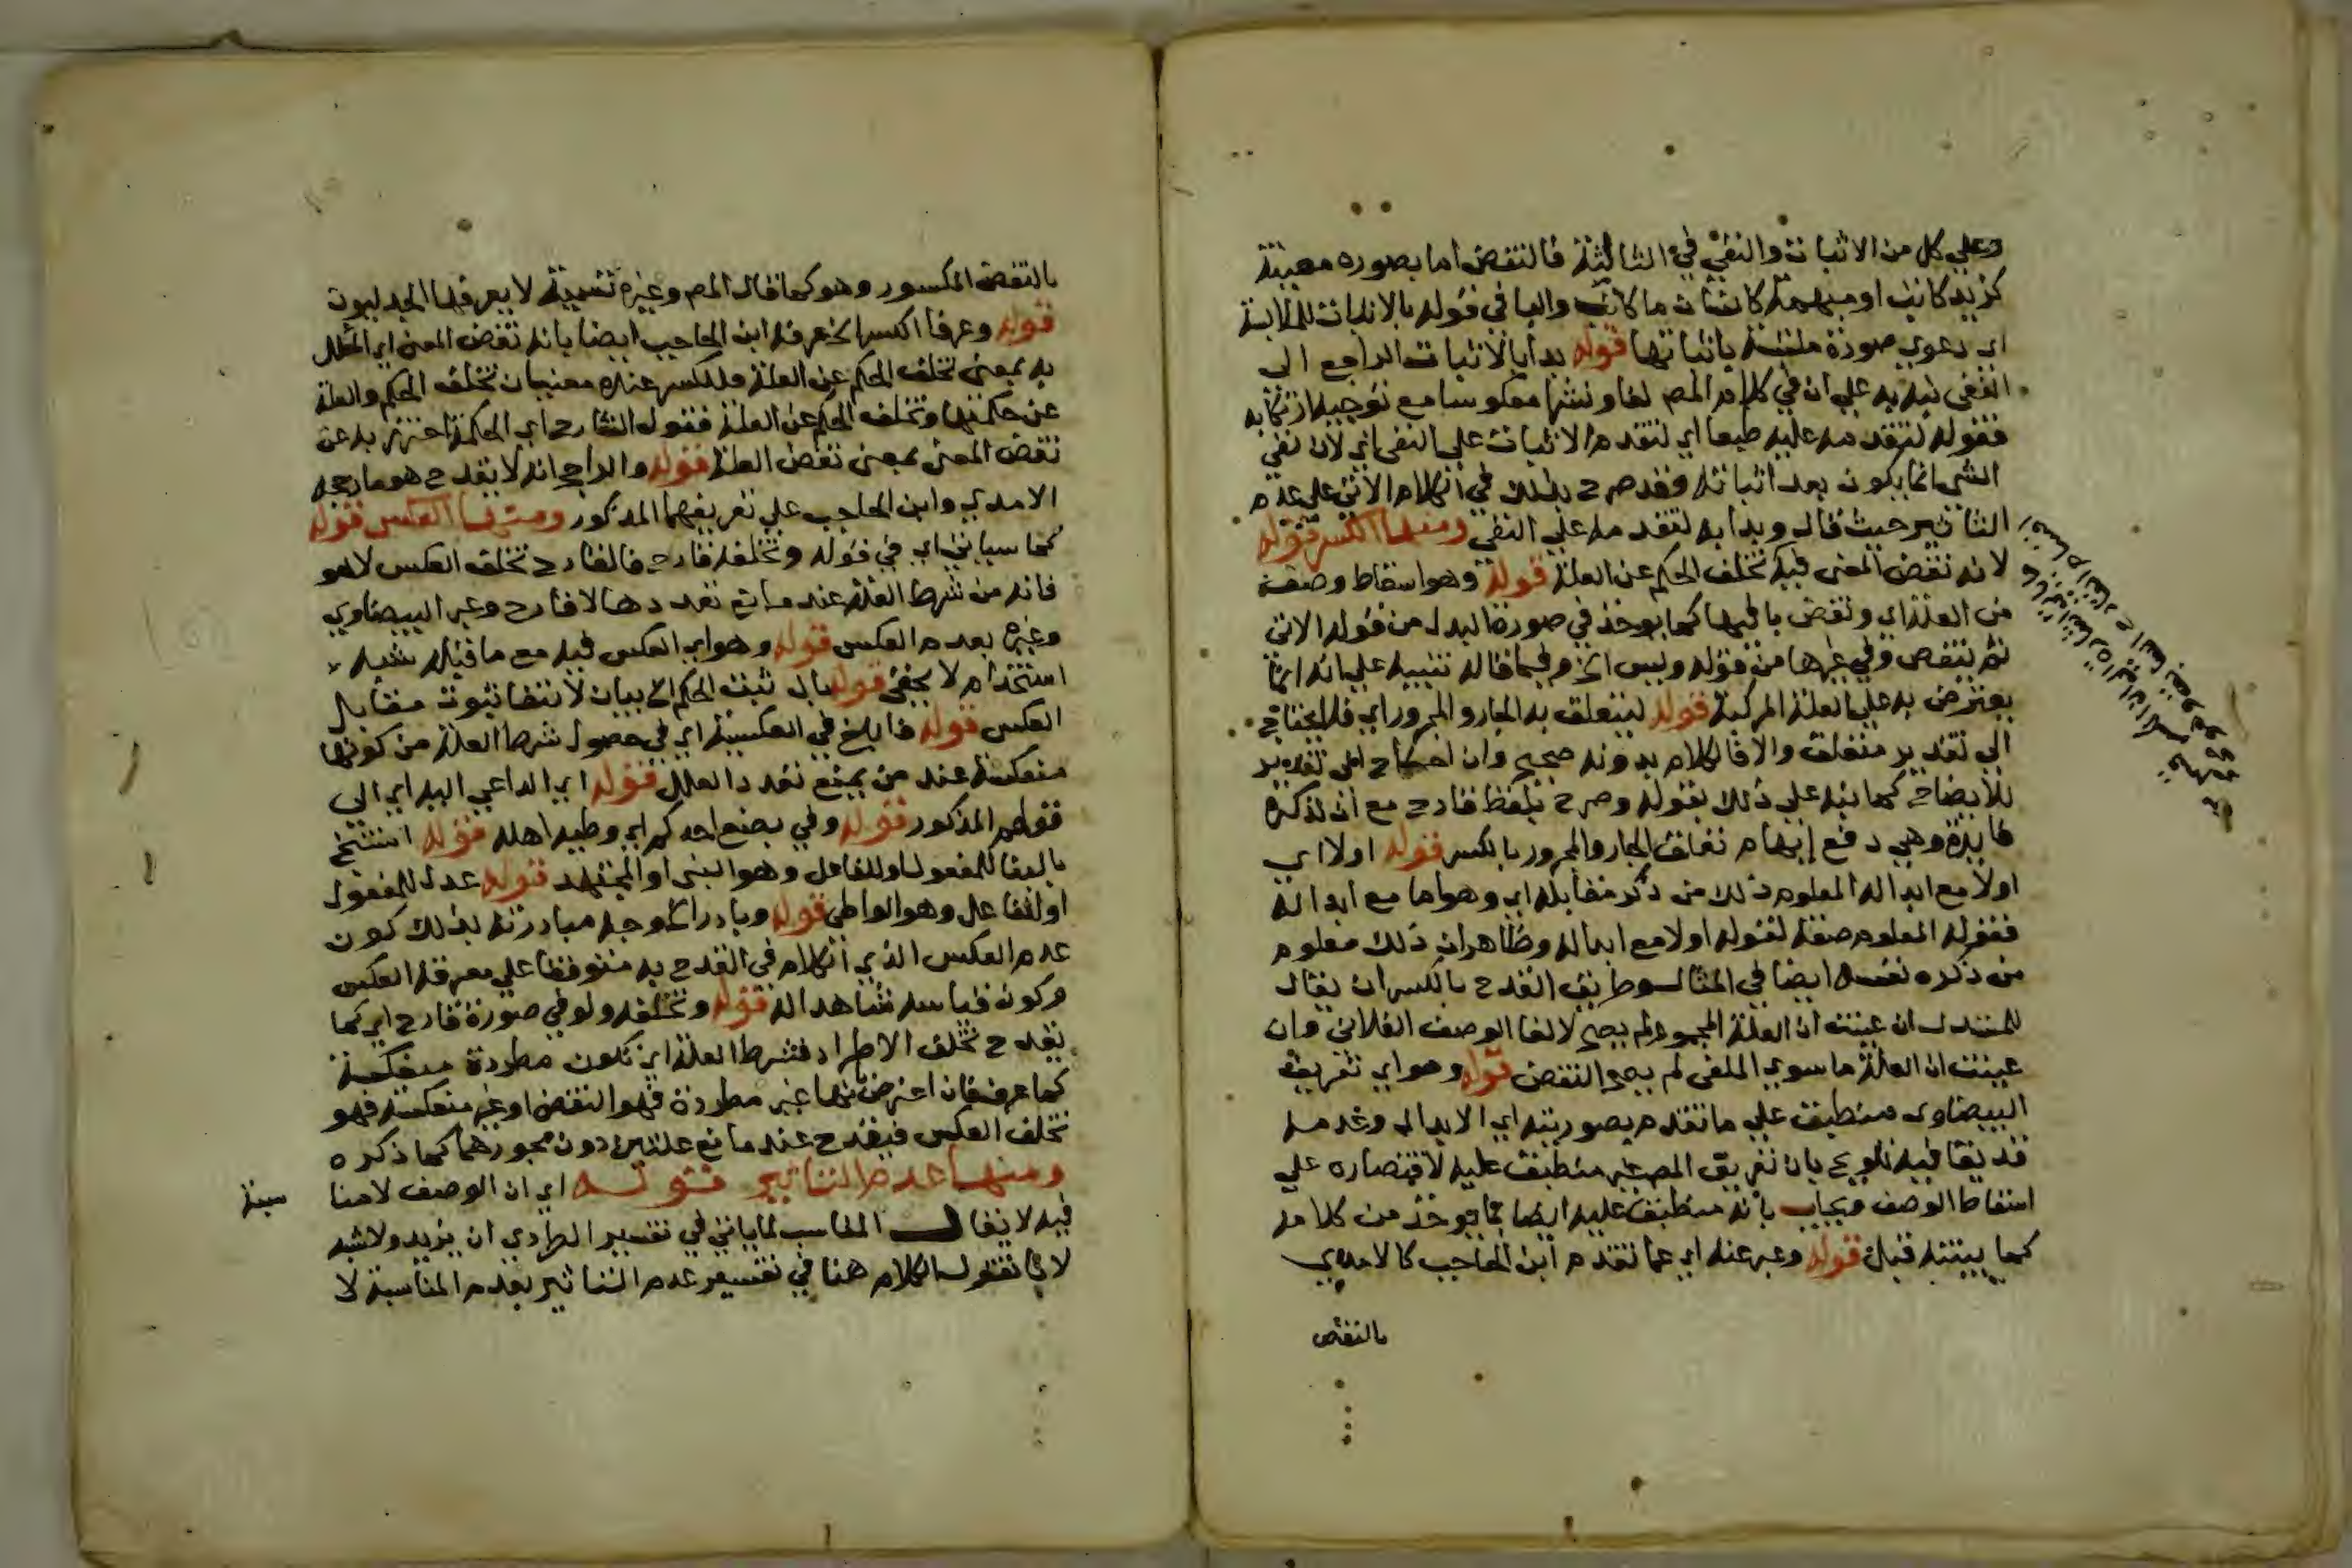 وعلي كل من الاثبات والنفي في الثالثة فالنقض اما بصوره معينة
كزيد كاتب او مبهمة كانسان ما كاتب والبا في قوله بالاثبات للملابسة
اي دعوي صورة ملتبسة باثباتها قوله بدا بالاثبات الراجع الى
النفى نبه به علي ان في كلام المص لفا ونشرا معكوسا مع توجيه ارتكابه
فقوله لتقدمه عليه طبعا اي لتقدم الاثبات على النفى اي لان نفي
الشي انما يكون بعد اثباته وقد صرح بذلك في الكلام الاتي على عدم
التاثير حيث قال وبدا به لتقدمه علي النفي ومنها الكسر قوله
لانه نقض المعنى فيه تخلف الحكم عن العلة قوله وهو اسقاط وصف
من العلة اي ونقض باقيها كما يوخذ في صورة البدل من قوله الاتي
ثم ينقض وفي غيرها من قوله وليس الخ وفيما قاله تنبيه علي انه انما
يعترض به على العلة المركبة قوله ليتعلق به الجار والمجرور اي فلا يحتاج
الى تقدير متعلق والا فالكلام بدونه صحيح وان احتاج الى تقدير
للايضاح كما نبه علي ذلك بقوله وصرح بلفظ قادح مع ان لذكره
فايدة وهي دفع ايهام تعلق الجار والمجرور بالكسر قوله اولا اي
اولا مع ابداله المعلوم ذلك من ذكر مقابله اي وهو اما مع ابداله
فقوله المعلوم صفة لقوله اولا مع ابداله وظاهر ان ذلك معلوم
من ذكره نفسه ايضا في المثال وطريق القدح بالكسر ان يقال
للمستدل ان عينت ان العلة المجموع لم يصح لالغا الوصف الفلاني وان
عينت ان العلة ما سوي الملغى لم يصح للنقض قوله وهو اي تعريف
البيضاوي منطبق علي ما تقدم بصورتيه اي الابدال وعدمه
قد يقا فيه تلويح بان تعريف المص غير منطبق عليه لاقتصاره علي
اسقاط الوصف ويجاب بانه منطبق عليه ايضا بما يوخذ من كلامه
كما بينته قبل قوله وعبر عنه اي عما تقدم ابن الحاجب كالامدي
بالنقض
بالنقض المكسور وهو كما قال المص وغيره تسمية لا يعرفها الجدليون
قوله وعرفا الكسر الخ عرفه ابن الحاجب ايضا بانه نقض المعنى اي المعلل
به بمعنى تخلف الحكم عن العلة فللكسر عنده معنيان تخلف الحكم والعلة
عن حكمتها وتخلف الحكم عن العلة فقول الشارح اي الحكمة احترز به عن
نقض المعنى بمعنى نقض العلة قوله والراجح انه لا يقدح هو ما رجحه
الامدي وابن الحاجب علي تعريفهما المذكور ومنها العكس قوله
كما سياتي اي في قوله وتخلفه قادح فالقادح تخلف العكس لا هو
فانه من شرط العلة عند مانع تعددها لا قادح وعبر البيضاوي
وغيره بعدم العكس قوله وهو اي العكس فيه مع ما قبله شبه
استخدام لا يخفى قوله بان ثبت الحكم الخ بيان لانتفا ثبوت مقابل
العكس قوله فابلغ في العكسية اي في حصول شرط العلة من كونها
منعكسة عند من يمنع تعدد العلل قوله اي الداعي اليه اي الى
قولهم المذكور قوله وفي بضع احدكم اي وطيه اهله قوله استنتج
بالبنا للمفعول او للفاعل وهو النبي او المجتهد قوله عدل للمفعول
او للفاعل وهو الواطي قوله وبادر الخ وجه مبادرته بذلك كون
عدم العكس الذي الكلام في القدح به متوقفا علي معرفة العكس
وكون قياسه شاهدا له قوله وتخلفه ولو في صورة قادح اي كما
يقدح تخلف الاطراد فشرط العلة اي تكون مطردة منعكسة
كما عرف فان اعترض بانها غير مطردة فهو النقض او غير منعكسة فهو
تخلف العكس فيقدح عند مانع علتين دون مجوزهما كما ذكره
ومنها عدم التاثير قوله اي ان الوصف لا منا
سبة
فيه لا يقال المناسب لما ياتي في تفسير الطردي ان يزيد ولا شبه
لانا نقول الكلام هنا في تفسير عدم التاثير بعدم المناسبة لا